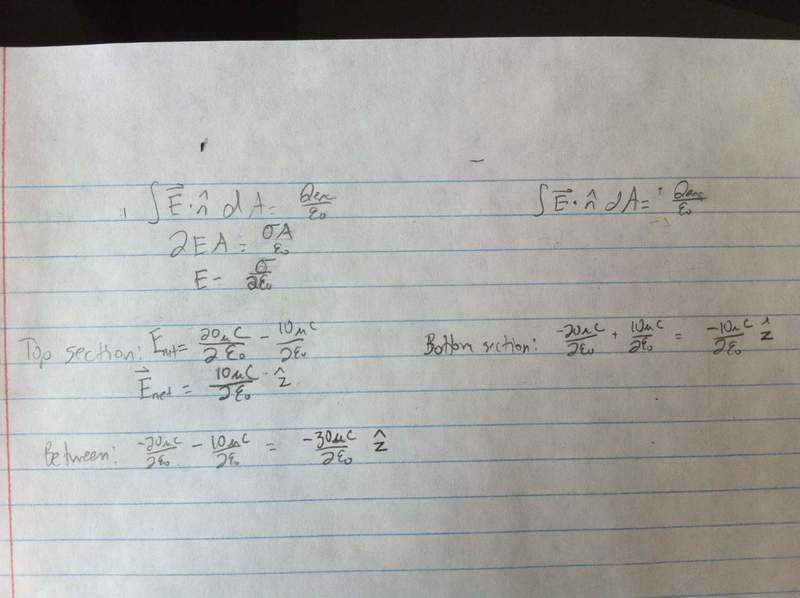 ∫ E⃗ · n̂ dA = Qenc/ε₀
2EA = σA/ε₀
E = σ/2ε₀
∫ E⃗ · n̂ dA = Qenc/ε₀
Top section: Enet = 20μC/2ε₀ - 10μC/2ε₀
E⃗net = 10μC/2ε₀ ẑ
Bottom section: -20μC/2ε₀ + 10μC/2ε₀ = -10μC/2ε₀ ẑ
Between: -20μC/2ε₀ - 10μC/2ε₀ = -30μC/2ε₀ ẑ